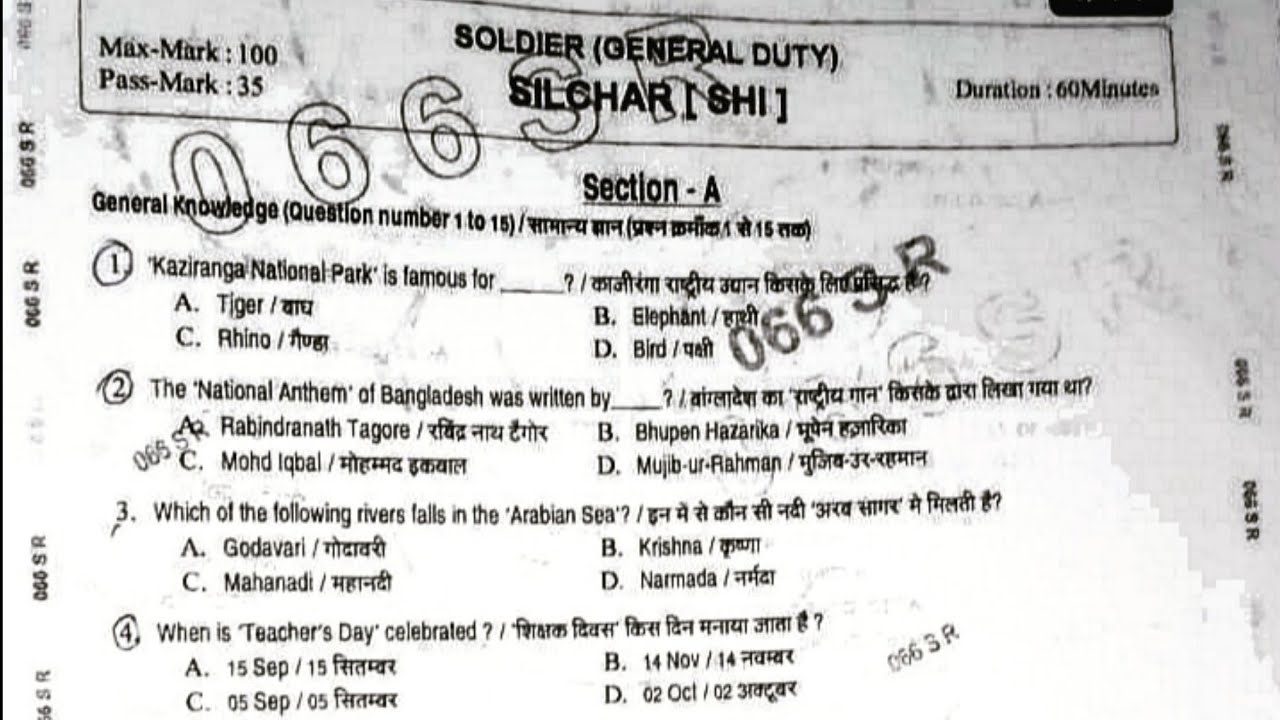 Max-Mark : 100
Pass-Mark : 35
SOLDIER (GENERAL DUTY)
SILCHAR [ SHI ]
Duration : 60Minutes
066 S R
Section - A
General Knowledge (Question number 1 to 15) / सामान्य ज्ञान (प्रश्न क्रमाँक 1 से 15 तक)
1. 'Kaziranga National Park' is famous for ______ ? / काजीरंगा राष्ट्रीय उद्यान किसके लिए प्रसिद्ध है ?
A. Tiger / बाघ
B. Elephant / हाथी
C. Rhino / गैण्डा
D. Bird / पक्षी
066 S R
2. The 'National Anthem' of Bangladesh was written by_____? / बांग्लादेश का 'राष्ट्रीय गान' किसके द्वारा लिखा गया था?
A. Rabindranath Tagore / रविंद्र नाथ टैगोर
B. Bhupen Hazarika / भूपेन हज़ारिका
C. Mohd Iqbal / मोहम्मद इकबाल
D. Mujib-ur-Rahman / मुजिब-उर-रहमान
066 S R
3. Which of the following rivers falls in the 'Arabian Sea'? / इन में से कौन सी नदी 'अरब सागर' मे मिलती है?
A. Godavari / गोदावरी
B. Krishna / कृष्णा
C. Mahanadi / महानदी
D. Narmada / नर्मदा
4. When is 'Teacher's Day' celebrated ? / 'शिक्षक दिवस' किस दिन मनाया जाता है ?
A. 15 Sep / 15 सितम्बर
B. 14 Nov / 14 नवम्बर
C. 05 Sep / 05 सितम्बर
D. 02 Oct / 02 अक्टूबर
066 S R
066 S R
066 S R
066 S R
066 S R
066 S R
066 S R